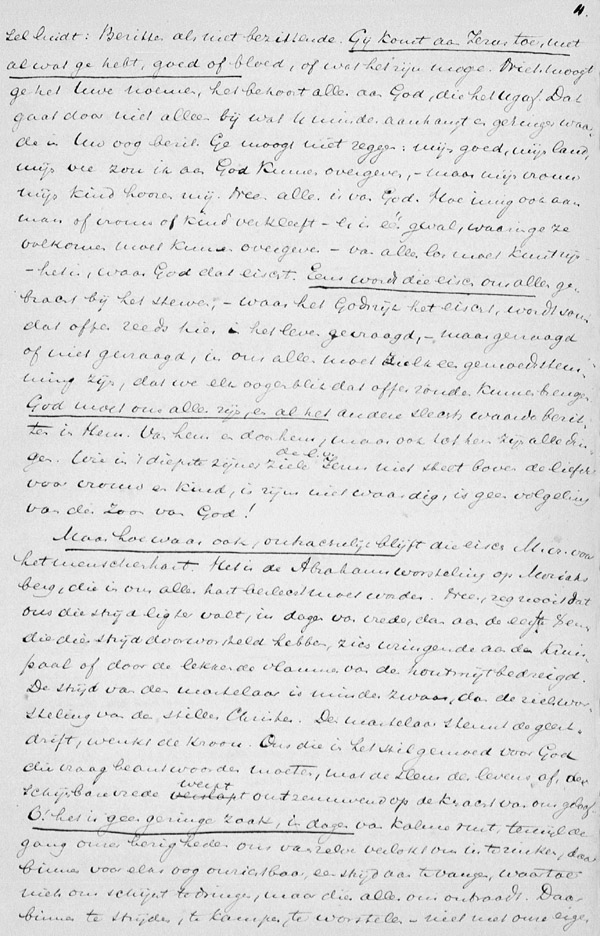 4.
zel luidt: Bezitten als niet bezittende. Gij komt aan Jezus toe, met
al wat ge hebt, goed of bloed, of wat het zijn moge. Niets moogt
ge het Uwe noemen, het behoort alles aan God, die het U gaf. Dat
gaat door niet alleen bij wat U minder aanhangt en geringer waar-
de in Uw oog bezit. Ge moogt niet zeggen: mijn goed, mijn land,
mijn vee zou ik aan God kunnen overgeven, – maar mijn vrouw
mijn kind hooren mij. Neen alles is van God. Hoe innig ook aan
man of vrouw of kind verkleeft – er is één geval, waarin ge ze
volkomen moet kunnen overgeven – van alles los moet kunt zijn
– het is, waar God dat eischt. Eens wordt die eisch ons allen ge-
bracht bij het sterven, – waar het Godsrijk het eischt, wordt soms
dat offer reeds hier in het leven gevraagd, – maar gevraagd
of niet gevraagd, in ons allen moet zulk een gemoedsstem-
ming zijn, dat we elk oogenblik dat offer zouden kunnen brengen
God moet ons alles zijn, en al het andere slechts waarde bezit-
ten in Hem. Van hem en door hem, maar ook tot hem zijn alle din-
gen. Wie in 't diepste zijner ziele de liefde Jezus niet stelt boven de liefde
voor vrouw en kind, is zijns niet waardig, is geen volgeling
van den Zoon van God!
Maar hoe waar ook, ontzachelijk blijft die eisch voor
het menschenhart. Het is de Abrahams worsteling op Moria's
berg, die in ons aller hart herleefd moet worden. Neen, zeg nooit dat
ons die strijd ligter valt, in dagen van vrede, dan aan de
die dien strijd doorworsteld hebben, zich wringende aan den
paal of door de lekkende vlammen van de houtmijt bedreigd.
De strijd van den martelaar is minder zwaar, dan de zielwor-
steling van den stillen Christen. Den martelaar steunt de geest-
drift, wenkt de kroon. Ons die in het stil gemoed voor God
die vraag beantwoorden moeten, mat de sleur des levens af, de
schijnbare vrede werpt ontzenuwend op de kracht van ons geloof.
O! het is geen geringe zaak, in dagen van kalme rust, terwijl de
gang onzer bezigheden ons van zelve verlokt om in te zinken, daar
binnen voor elks oog onzichtbaar, een strijd aan te vangen, waartoe
niets ons schijnt te dringen, maar die alles ons ontraadt. Daar
binnen te strijden, te kampen, te worstelen – niet met onze eige-